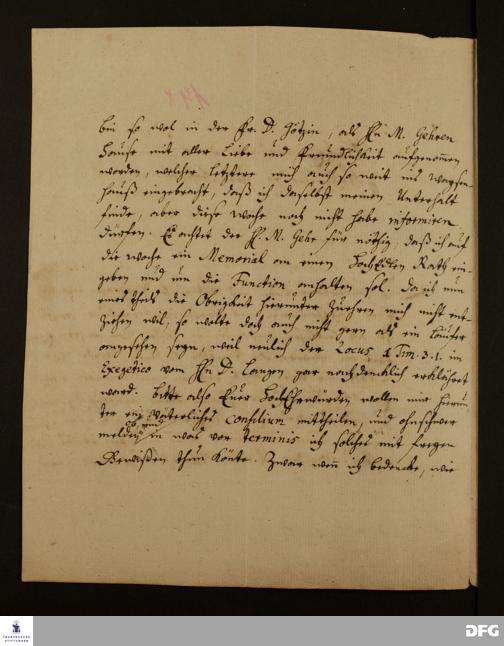 148
bin so wol in der Fr. D. Götzin, als Hn M. Gehren
Hause mit aller Liebe und Freundlichkeit aufgenommen
worden, welcher letztere mich auch so weit ins Waysen
hauß eingebracht, daß ich daselbst meinen Unterhalt
finde, aber diese Woche noch nicht habe informiren
dürfen. Es achtet der H. M. Gehr für nöthig, daß ich auf
die Woche ein Memorial an einen HochEdlen Rath ein-
geben und um die Function anhalten sol. da ich nun
eines theils die Obrigkeit hierunter zu ehren mich nicht ent-
ziehen wil, so wolte doch auch nicht gern als ein Läufer
angesehen seyn, weil neulich der Locus 1 Tim. 3. 1. im
Exegetico vom Hn D. Langen gar nachdencklich erkläret
ward. bitte also Euer HochEhrwürden wollen mir hierun
ter ein Väterliches consilium mittheilen, und ohnschwer
melden, ob und in was vor terminis ich solches mit freyen
Gewissen thun könte. Zwar wen ich bedencke, wie
FRANCKESCHE
STIFTUNGEN
DFG